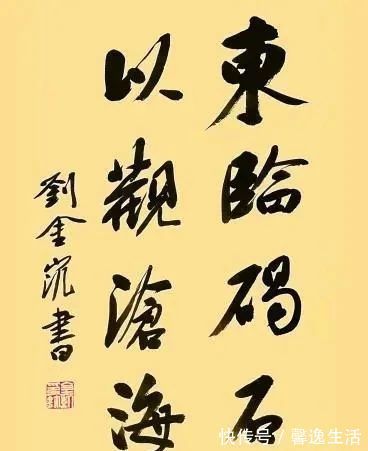 東臨碣石
以觀滄海
劉金沉書
快传号 / 馨逸生活